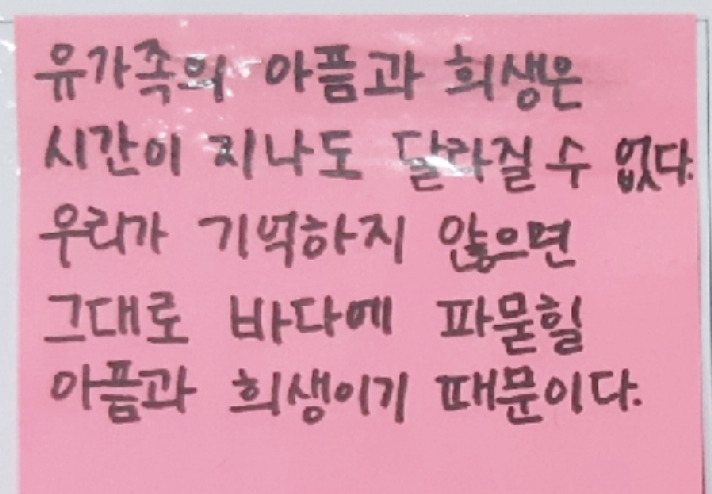 유가족의 아픔과 희생은
시간이 지나도 달라질 수 없다.
우리가 기억하지 않으면
그대로 바다에 파묻힐
아픔과 희생이기 때문이다.